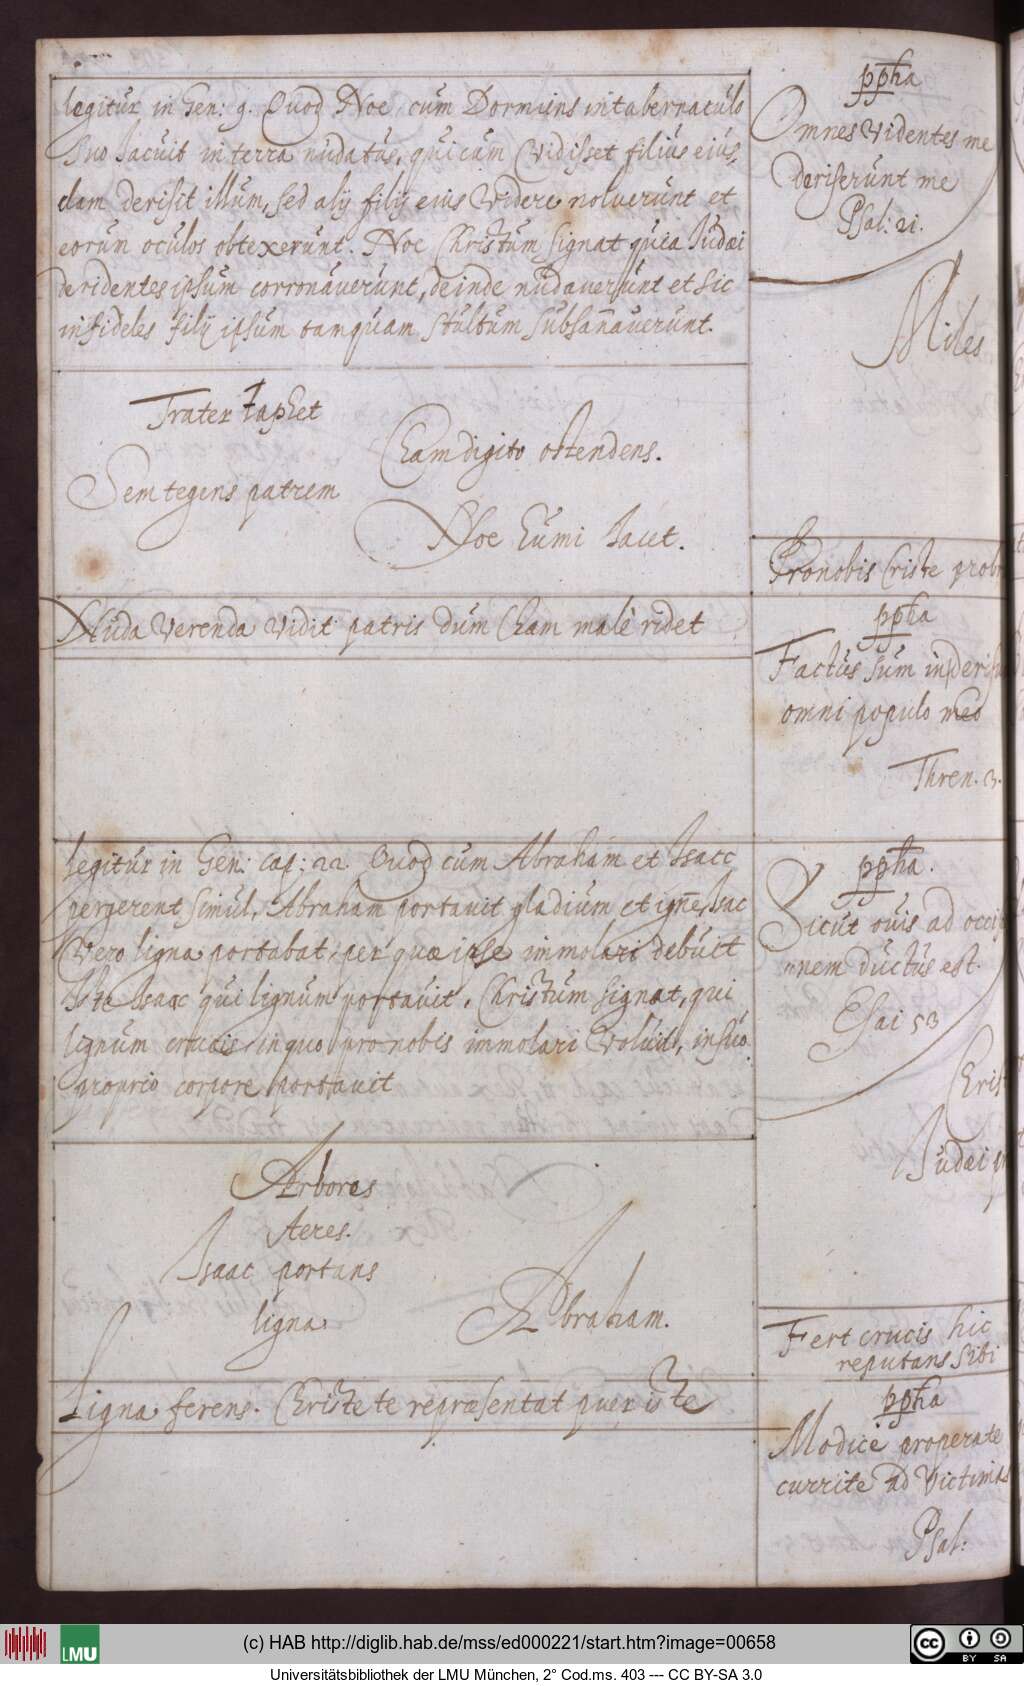 legitur in Gen: 9. Quod Noe cum Dormiens in tabernaculo
suo Iacuit in terra nudatus, qui cum Vidisset filius eius,
clam derisit illum, sed alij filij eius Videre noluerunt et
eorum oculos obtexerunt. Noe Christum signat quia Iudæi
deridentes ipsum corronauerunt, deinde nudauerunt et sic
infideles filij ipsum tamquam stultum subsan̄auerunt.
Frater Iaphet
Cham digito ostendens.
Sem tegens patrem
Noe humi Iacet.
Nuda Verenda vidit patris dum Cham malè ridet
legitur in Gen: cap: 22. Quod cum Abraham et Isacc
pergerent simul, Abraham portauit gladium et ign̄e, Isac
Vero ligna portabat, per quæ ipse immolari debuit
Iste Isaac qui lignum portauit, Christum signat, qui
lignum crucis in quo pro nobis immolari Voluit, in suo
proprio corpore portauit
Arbores
Aeres.
Isaac portans
ligna
Abraham.
Ligna ferens. Christe te repræsentat puer iste
ppha
Omnes videntes me
deriserunt me
Psal: 21.
Miles
Pro nobis Criste probr
ppha
Factus sum in deris
omni populo meo
Thren. 3.
ppha.
Sicut ouis ad occis
nem ductus est.
Esai 53
Crist
Iudæi
Fert crucis hic
reputans sibi
ppha
Modice properate
currite ad Victimas
Psal:
(c) HAB http://diglib.hab.de/mss/ed000221/start.htm?image=00658
LMU
cc
BY SA
Universitätsbibliothek der LMU München, 2° Cod.ms. 403 --- CC BY-SA 3.0